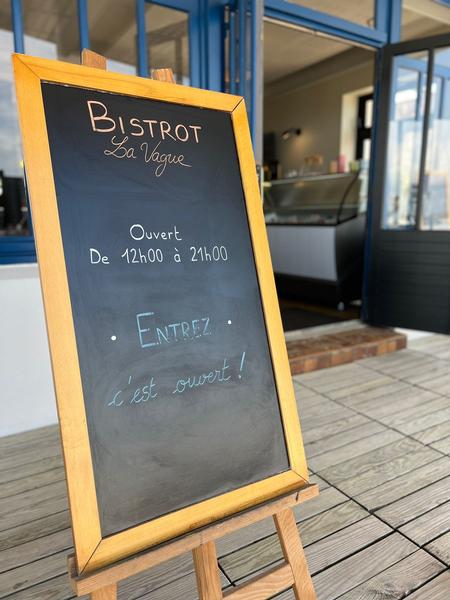 BISTROT
La Vague
Ouvert
De 12h00 à 21h00
• ENTREZ •
c'est ouvert !